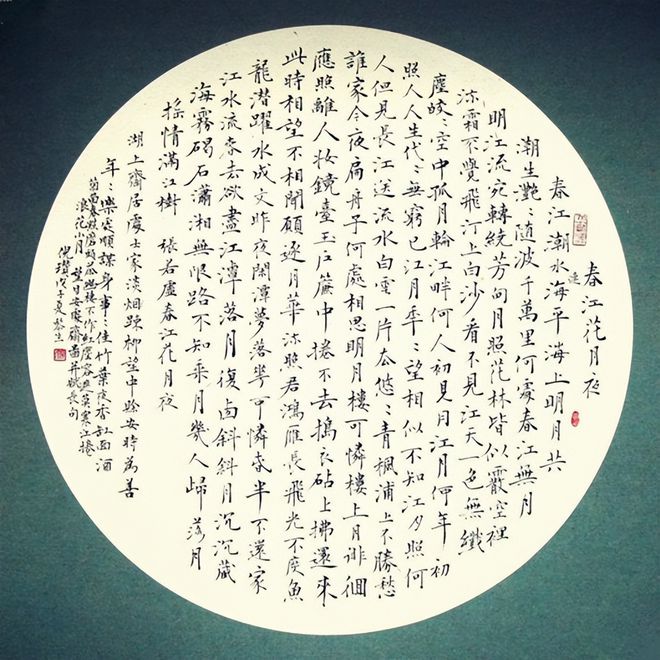 春江花月夜
春江潮水連海平海上明月共
潮生艷〻隨波千萬里何處春江無月
明江流宛轉繞芳甸月照花林皆似霰空裡
流霜不覺飛汀上白沙看不見江天一色無纖
塵皎〻空中孤月輪江畔何人初見月江月何年初
照人人生代〻無窮已江月年〻望相似不知江夕照何
人但見長江送流水白雲一片去悠〻青楓浦上不勝愁
誰家今夜扁舟子何處相思明月樓可憐樓上月徘徊
應照離人妝鏡臺玉戶簾中捲不去搗衣砧上拂還來
此時相望不相聞願逐月華流照君鴻雁長飛光不度魚
龍潛躍水成文昨夜閑潭夢落花可憐春半不還家
江水流春去欲盡江潭落月復西斜斜月沉沉藏
海霧碣石瀟湘無限路不知乘月幾人歸落月
搖情滿江樹 張若虛春江花月夜
湖上齋居處士家淡烟踈柳望中賒安時為善
年〻樂處順謀身事〻佳竹葉夜香缸面酒
菊苗春點磨頭茶幽棲不作紅塵客遮莫寒江捲
浪花小月 望日安處齋圖并賦長句
倪瓚戊子夏黎生